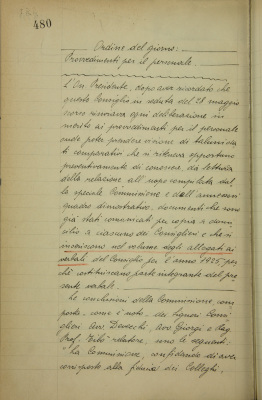 480
Ordine del giorno:
Provvedimenti per il personale.
L'On. Presidente, dopo aver ricordato che
questo Consiglio in seduta del 28 maggio
scorso rinviava ogni deliberazione in
merito ai provvedimenti per il personale
onde poter prendere visione di
comparativi che si riteneva opportuno
preventivamente di conoscere, dà lettura
della relazione all'uopo compilata dal
la speciale Commissione e dell'annesso
quadro dimostrativo, documenti che sono
già stati comunicati per copia a domi
cilio a ciascuno dei Consiglieri e che si
inseriscono nel volume degli allegati ai
verbali del Consiglio per l'anno 1925 per
chè costituiscano parte integrante del pre
sente verbale.
Le conclusioni della Commissione com
posta, come è noto, dei Signori Consi
glieri Avv. Avv. Giorgi e Rag.
Prof. relatore, sono le seguenti:
"La Commissione, confidando di aver
corrisposto alla fiducia dei Colleghi,